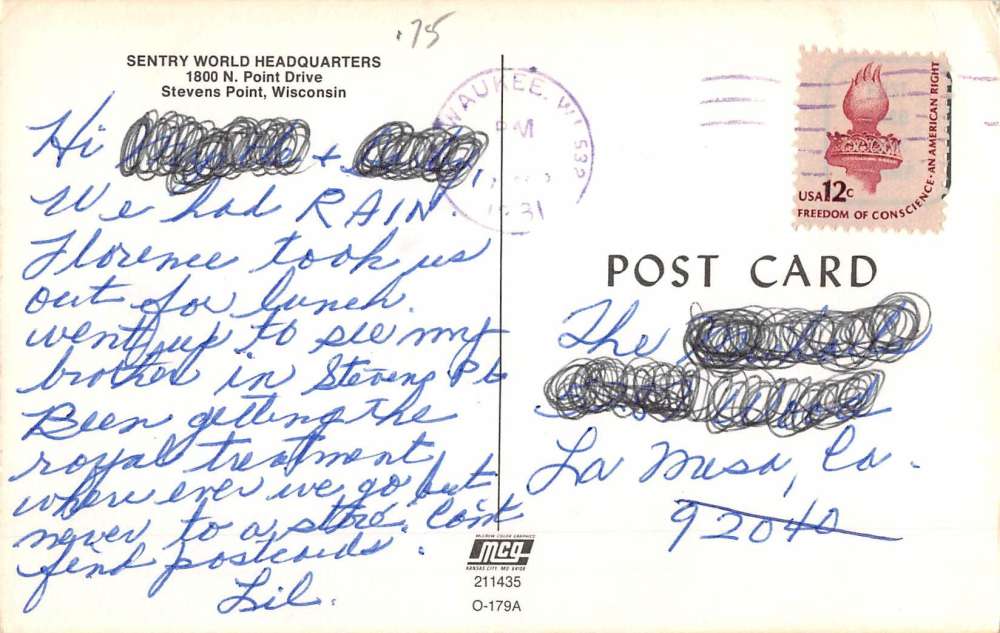 .75
SENTRY WORLD HEADQUARTERS
1800 N. Point Drive
Stevens Point, Wisconsin
Hi +
We had RAIN.
Florence took us
out for lunch.
went up to see my
brother in Stevens Pt
Been getting the
royal treatment
where ever we go but
never to a store. Can't
find postcards.
Lil.
WAUKEE, WI 532
PM
1981
USA 12c
FREEDOM OF CONSCIENCE - AN AMERICAN RIGHT
POST CARD
The
La Mesa, Ca.
92040
McGREW COLOR GRAPHICS
mcg
KANSAS CITY, MO 64108
211435
O-179A